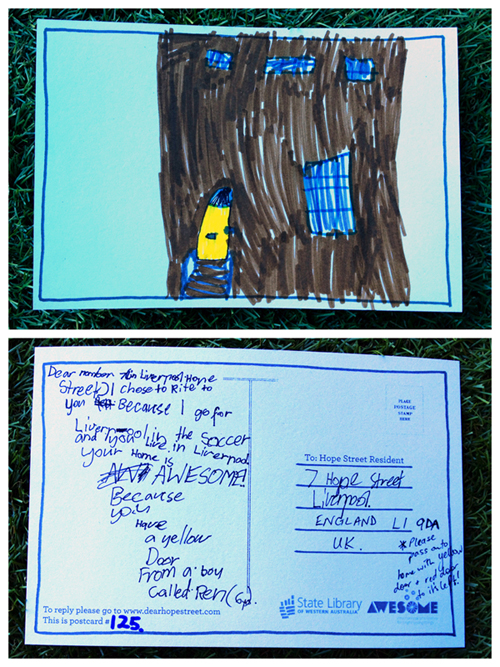 Dear number 7 in Liverpool Hope
Street I chose to Rite to
you Because I go for
Liverpool in the soccer
and you live in Liverpool
your Home is
AWESOME!
Because
you
Have
a yellow
Door
From a boy
called Ren (6yo).
To reply please go to www.dearhopestreet.com
This is postcard # 125.
PLACE
POSTAGE
STAMP
HERE
To: Hope Street Resident
7 Hope Street
Liverpool.
ENGLAND L1 9DA
UK.
* Please
pass onto
home with yellow
door + red door
to its left!
State Library
OF WESTERN AUSTRALIA
AWESOME